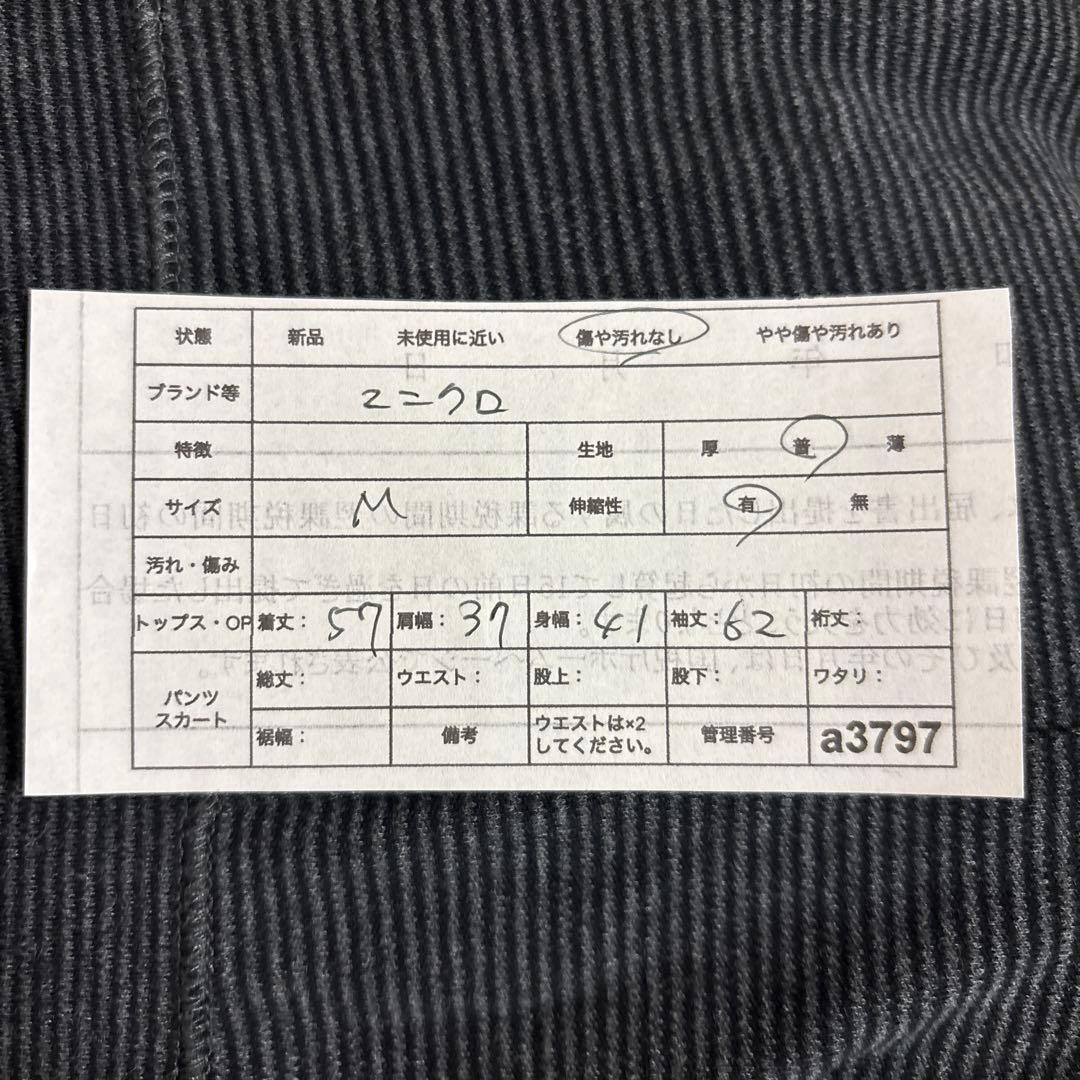 状態 新品 未使用に近い 傷や汚れなし やや傷や汚れあり
ブランド等 ユニクロ
特徴 生地 厚 普 薄
サイズ M 伸縮性 有 無
汚れ・傷み
トップス・OP 着丈: 57 肩幅: 37 身幅: 41 袖丈: 62 裄丈:
パンツ スカート 総丈: ウエスト: 股上: 股下: ワタリ:
裾幅: 備考 ウエストは×2 してください。 管理番号 a3797